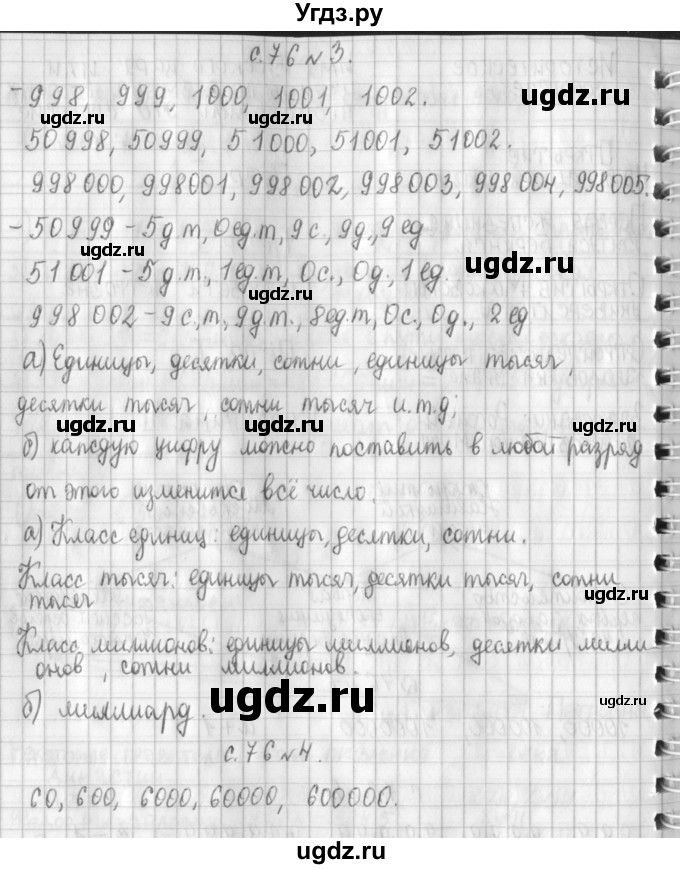 Угдз.ру
с.76 №3.
-998, 999, 1000, 1001, 1002.
ugdz.ru
ugdz.ru ugdz.ru
50998, 50999, 51000, 51001, 51002.
998000, 998001, 998002, 998003, 998004, 998005.
-50999 - 5д.т, 0ед.т, 9с., 9д., 9 ед
ugdz.ru
51001 - 5д.т., 1ед.т, 0с., 0д., 1 ед.
ugdz.ru
998 002 - 9с.т, 9д.т., 8ед.т, 0с., 0д., 2 ед
а) Единицы, десятки, сотни, единицы тысяч,
десятки тысяч, сотни тысяч и.т.д;
ugdz.ru ugdz.ru
б) каждую цифру можно поставить в любой разряд
от этого изменится всё число.
а) Класс единиц: единицы, десятки, сотни.
Класс тысяч: единицы тысяч, десятки тысяч, сотни
тысяч
ugdz.ru
Класс миллионов: единицы миллионов, десятки милли
онов, сотни миллионов.
ugdz.ru
ugdz.ru
б) миллиард.
с.76 №4.
60, 600, 6000, 60000, 600000.
ugdz.ru
ugdz.ru